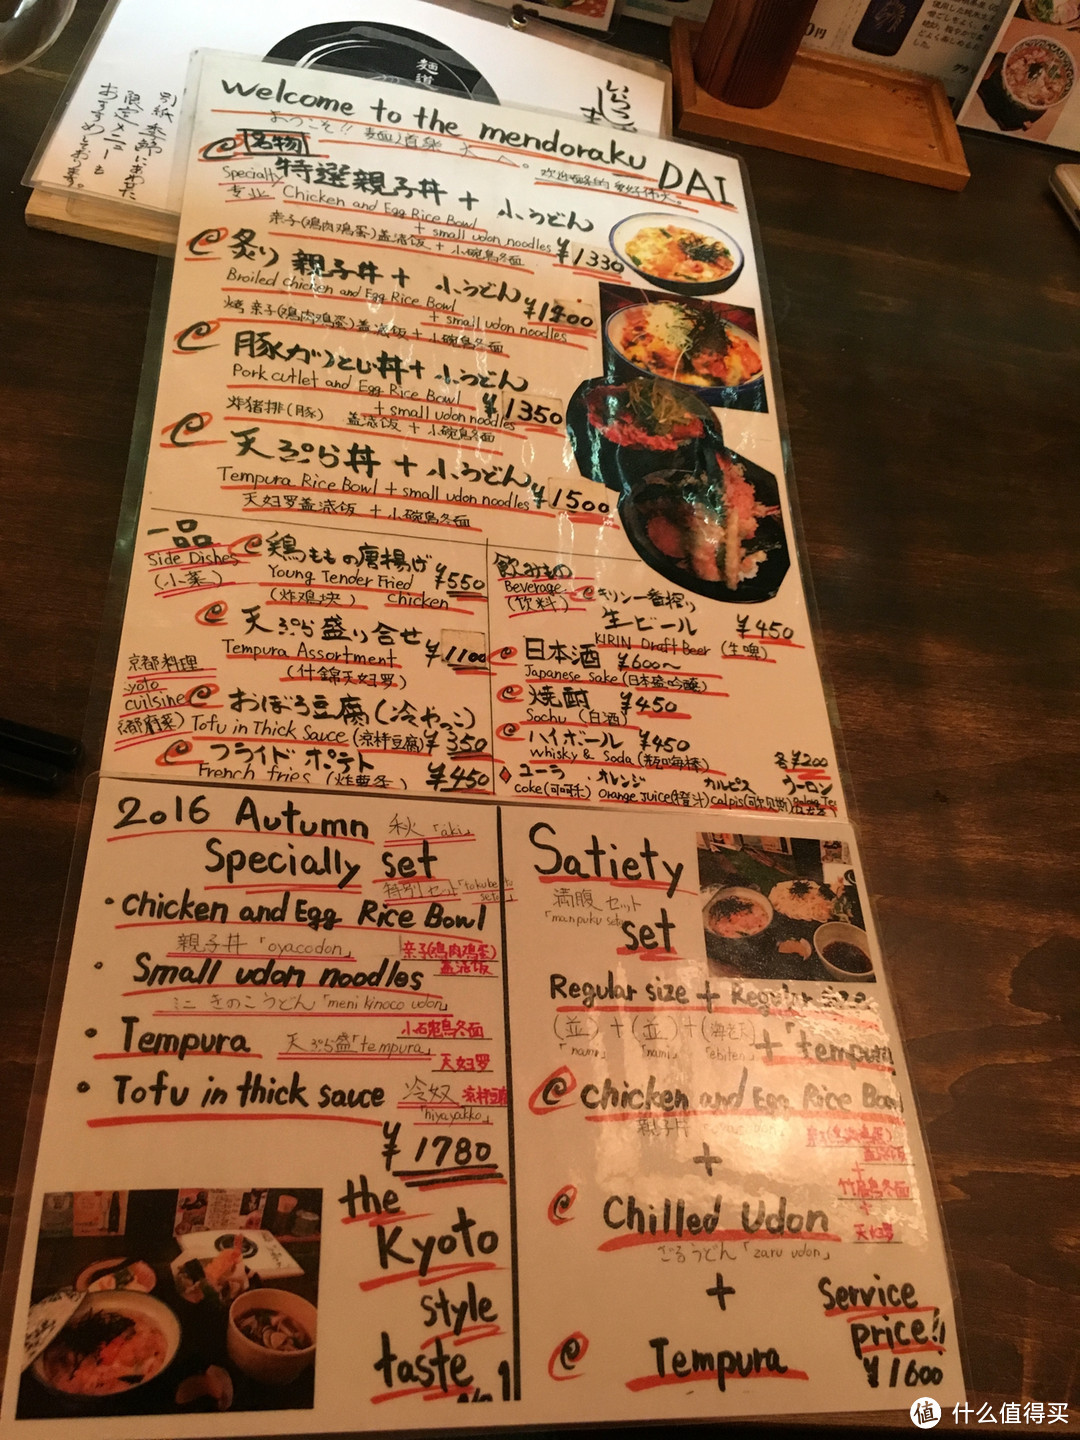 麺道
別紙 季節にあわせた
限定メニューも
おすすめしております。
welcome to the mendoraku DAI
ようこそ!!
名物
特選親子丼 + 小うどん
Specialty
专业
Chicken and Egg Rice Bowl
+ small udon noodles
亲子(鸡肉鸡蛋)盖浇饭 + 小碗乌冬面
¥1330
炙り 親子丼 + 小うどん
Broiled chicken and Egg Rice Bowl
+ small udon noodles
¥1400
烤 亲子(鸡肉鸡蛋)盖浇饭 + 小碗乌冬面
豚カツとじ丼 + 小うどん
Pork cutlet and Egg Rice Bowl
+ small udon noodles
¥1350
炸猪排(豚) 盖浇饭 + 小碗乌冬面
天ぷら丼 + 小うどん
Tempura Rice Bowl + small udon noodles
¥1500
天妇罗盖浇饭 + 小碗乌冬面
一品
Side Dishes
(小菜)
鶏ももの唐揚げ
Young Tender Fried
Chicken
(炸鸡块)
¥550
天ぷら盛り合せ
Tempura Assortment
¥1100
(什錦天妇罗)
京都料理
yoto
cuilsine
おぼろ豆腐(冷やっこ)
Tofu in Thick Sauce (凉拌豆腐) ¥350
フライドポテト
French fries (炸薯条) ¥450
飲みもの
Beverage
(饮料)
キリン一番搾り
生ビール ¥450
KIRIN Draft Beer (生啤)
日本酒 ¥600~
Japanese Sake (日本盛吟醸)
焼酎 ¥450
Sochu (白酒)
ハイボール ¥450
whisky & Soda
各¥200
コーラ ・オレンジ カルピス ウーロン
coke(可口可乐) Orange Juice(橙汁) calpis
2016 Autumn
秋 「aki」
Specially set
特別セット
・chicken and Egg Rice Bowl
親子丼 「oyacodon」
亲子(鸡肉鸡蛋)
盖浇饭
・Small udon noodles
ミニ きのこうどん 「meni kinoco udon」
小碗乌冬面
・Tempura
天ぷら盛「tempura」
天妇罗
・Tofu in thick sauce
冷奴 凉拌豆腐
「hiyayakko」
¥1780
the
Kyoto
style
taste
Satiety
満腹セット
set
Regular size + Regular size
+ Tempura
(並) + (並) + (海老天)
「nami」 「nami」 「ebiten」
chicken and Egg Rice Bowl
親子丼
亲子(鸡肉鸡蛋)
盖浇饭
+
+
Chilled Udon
ざるうどん「zaru udon」
+
天妇罗
+
Tempura
Service
price!!
¥1600
值 什么值得买